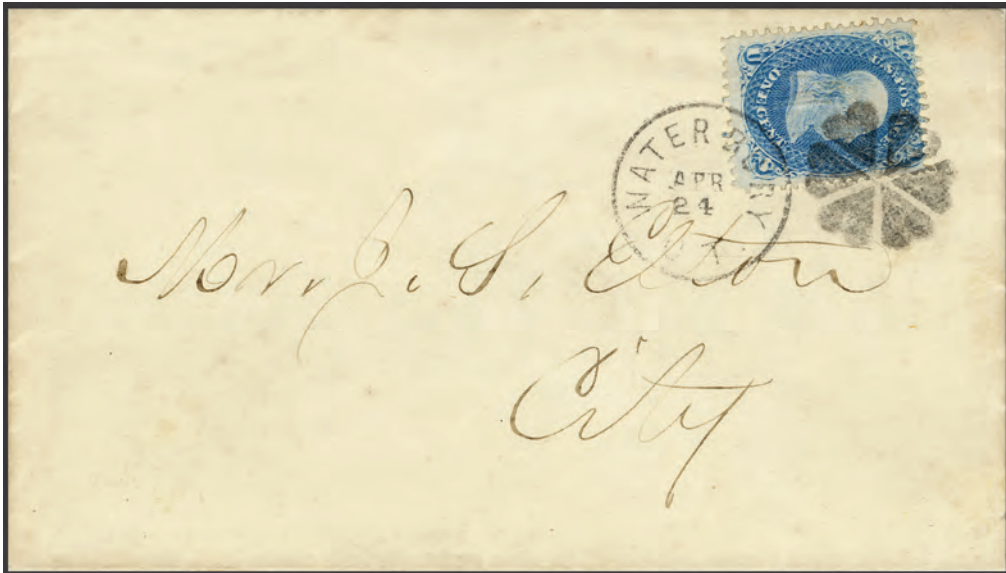 U.S. POSTAGE
ONE CENT
WATERBURY CT.
APR
24
Mr. J. S. Elton
City